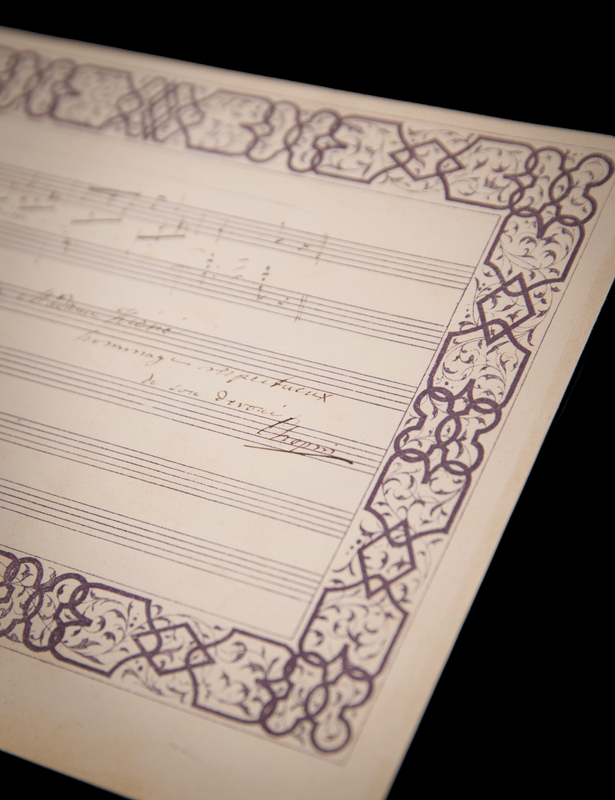 Madame
hommage respectueux
de son devoué
Chopin